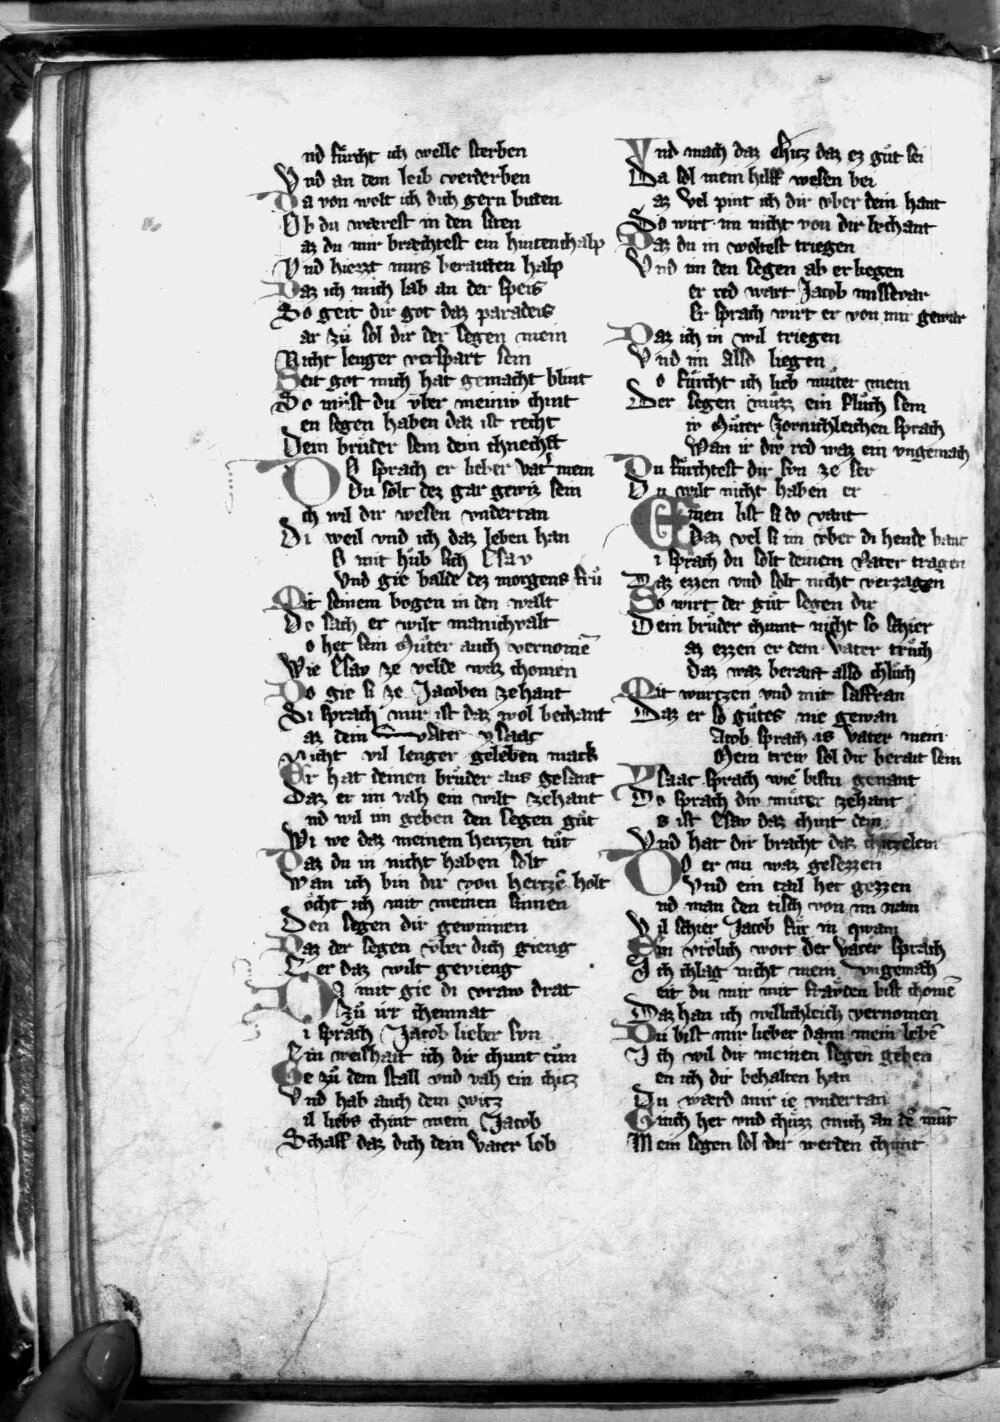 nd fürcht ich welle sterben
Vnd an dem leib verderben
Da von wolt ich dich gern biten
Ob du wærest in den siten
az du mir bræchtest ein hintenchalp
Vnd hiezzt mirs beraiten halp
Daz ich mich lab an der speis
So geit dir got daz paradeis
ar zů sol dir der segen mein
Nicht lenger verspart sein
Seit got mich hat gemacht blint
So můst du vber meinew chint
en segen haben daz ist recht
Dem brůder sein dein chnecht
Do sprach er lieber vater mein
Du solt dez gar gewiz sein
ch wil dir wesen vndertan
Di weil vnd ich daz leben han
a mit hůb sich Esav
Vnd gie balde dez morgens frů
Mit seinem bogen in den walt
Do sach er wilt manichvalt
o het sein Můter auch vernomē
Wie Esav ze velde waz chomen
Do gie si ze Jacoben zehant
Si sprach mir ist daz wol bechant
az dein vater ysaac
Nicht vil lenger geleben mack
Er hat deinen brůder aus gesant
Daz er im vah ein wilt zehant
nd wil im geben den segen gůt
Wi we daz meinem hertzen tůt
Daz du in nicht haben solt
Wan ich bin dir von hertzē holt
öcht ich mit meinen sinnen
Den segen dir gewinnen
Daz der segen vber dich gieng
E er daz wilt gevieng
Da mit gie di vraw drat
Zů ir chemnat
i sprach Jacob lieber svn
Ein weishait ich dir chunt tůn
Ge zů dem stall vnd vah ein chitz
Vnd hab auch dein witz
il liebs chint mein Jacob
Schaff daz dich dein vater lob
Vnd mach daz chitz daz ez gůt sei
Da sol mein hilff wesen bei
az vel pint ich dir vber dein hant
So wirt im nicht von dir bechant
Daz du in woltest triegen
Vnd im den segen ab erliegen
er red wart Jacob missevar
Er sprach wirt er von mir gewar
Daz ich in wil triegen
Vnd im also liegen
o fürcht ich lieb můter mein
Der segen můzz ein flůch sein
ir Můter zornichleichen sprach
Wan ir dir red waz ein vngemach
Du fürchtest dir svn ze ser
Du wilt nicht haben er
Einen list si do vant
Daz vel si im vber di hende bant
i sprach du solt deinem vater tragen
Daz ezzen vnd solt nicht verzagen
So wirt der gůt segen dir
Dein brůder chumt nicht so schier
az ezzen er dem vater trůch
Daz waz berait also chlůch
Mit wurtzen vnd mit saffran
Daz er so gůtes nie gewan
acob sprach is vater mein
Mein trew sol dir berait sein
Ysaac sprach wie bistu genant
Do sprach div můter zehant
s ist Esav daz chint dein
Vnd hat dir bracht daz chitzelein
Do er nu waz gesezzen
Vnd ein tail het gezzen
nd man den tisch von im nam
Vil schier Jacob für in qwam
Ein vrölich wort der vater sprach
Ich chlag nicht mein vngemach
eit du mir mit fræuden bist chomē
Daz han ich willichleich vernomen
Du bist mir lieber dann mein lebē
Ich wil dir meinen segen geben
en ich dir behalten han
Du wærd mir ie vndertan
Ginch her vnd chüzz mich an dē mūt
Mein segen sol dir werden chunt